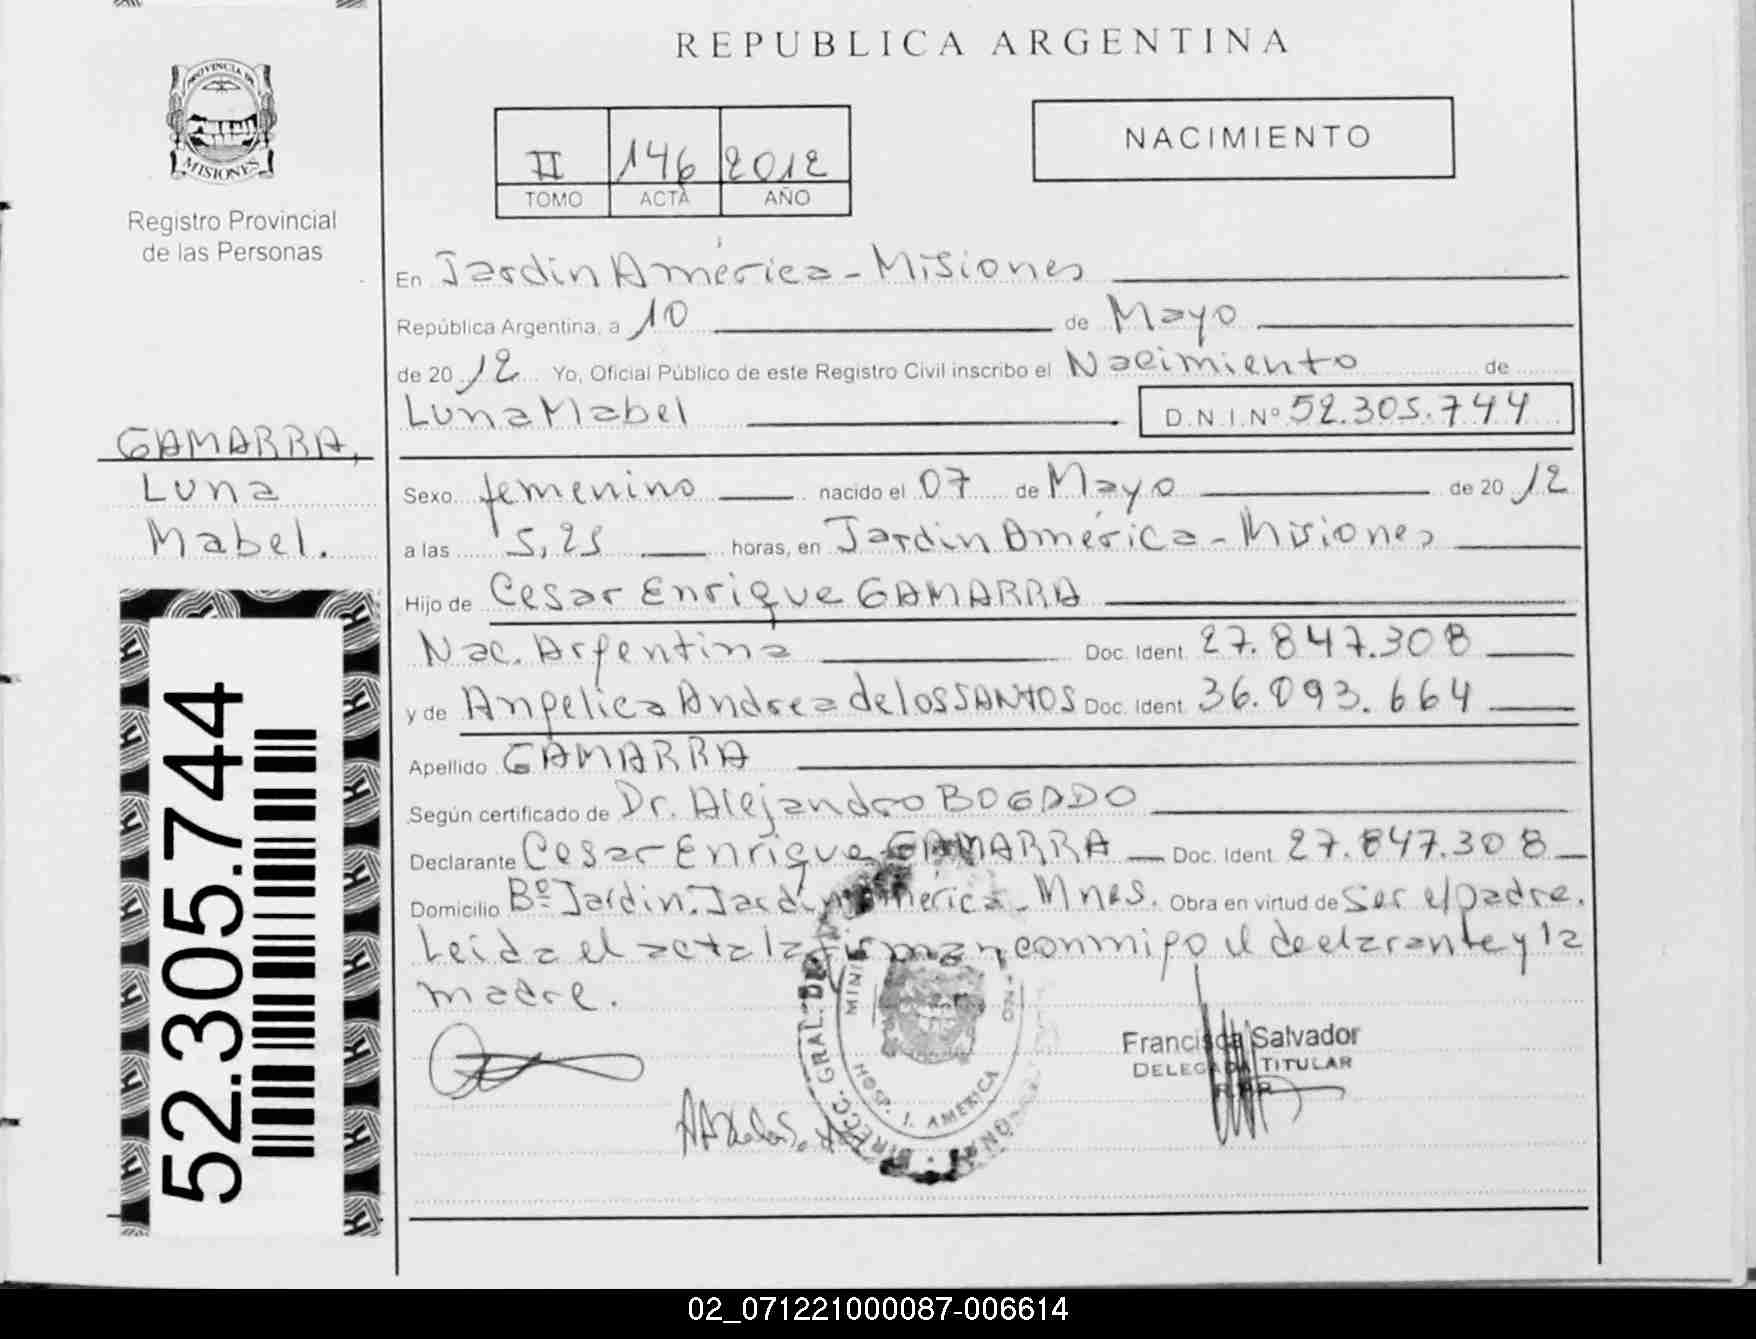 REPUBLICA ARGENTINA
PROVINCIA DE
MISIONES
Registro Provincial
de las Personas
II 146 2012
TOMO ACTA AÑO
NACIMIENTO
En Jardin América - Misiones
República Argentina, a 10 de Mayo
de 2012 Yo, Oficial Público de este Registro Civil inscribo el Nacimiento de
Luna Mabel D.N.I.Nº 52.305.744
GAMARRA,
Luna
Mabel.
Sexo femenino nacido el 07 de Mayo de 2012
a las 5,25 horas, en Jardin América - Misiones
Hijo de Cesar Enrique GAMARRA
Nac. Argentina Doc. Ident. 27.847.308
y de Angelica Andrea de los SANTOS Doc. Ident. 36.093.664
Apellido GAMARRA
Según certificado de Dr. Alejandro BOGADO
Declarante Cesar Enrique GAMARRA Doc. Ident. 27.847.308
Domicilio Bº Jardin. Jardin América - Mnes. Obra en virtud de Ser el padre.
Leida el acta la firman conmigo el declarante y la
madre.
52.305.744
HOSP. J. AMERICA
Francisca Salvador
DELEGADA TITULAR
02_071221000087-006614